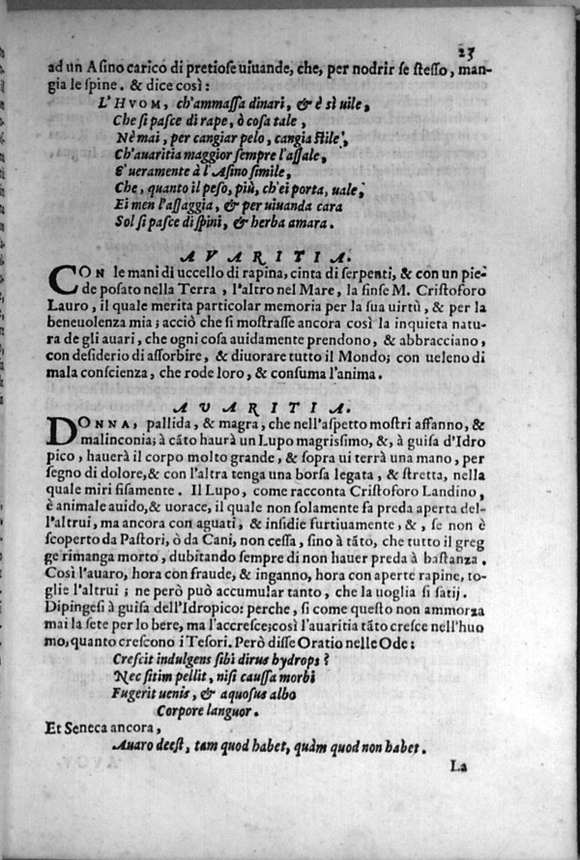 23
ad un Asino carico di pretiose uiuande, che, per nodrir se stesso, man-
gia le spine. & dice così:
L'HVOM, ch'ammassa dinari, & è sì uile,
Che si pasce di rape, ò cosa tale,
Nè mai, per cangiar pelo, cangia stile,
Ch'auaritia maggior sempre l'assale,
E' ueramente à l'Asino simile,
Che, quanto il peso, più, ch'ei porta, uale,
Ei men l'assaggia, & per uiuanda cara
Sol si pasce di spini, & herba amara.
AVARITIA.
CON le mani di uccello di rapina, cinta di serpenti, & con un pie-
de posato nella Terra, l'altro nel Mare, la finse M. Cristoforo
Lauro, il quale merita particolar memoria per la sua uirtù, & per la
beneuolenza mia; acciò che si mostrasse ancora così la inquieta natu-
ra de gli auari, che ogni cosa auidamente prendono, & abbracciano,
con desiderio di assorbire, & diuorare tutto il Mondo; con ueleno di
mala conscienza, che rode loro, & consuma l'anima.
AVARITIA.
DONNA, pallida, & magra, che nell'aspetto mostri affanno, &
malinconia; à cãto haurà un Lupo magrissimo, &, à guisa d'Idro
pico, hauerà il corpo molto grande, & sopra ui terrà una mano, per
segno di dolore, & con l'altra tenga una borsa legata, & stretta, nella
quale miri fisamente. Il Lupo, come racconta Cristoforo Landino,
è animale auido, & uorace, il quale non solamente fa preda aperta del-
l'altrui, ma ancora con aguati, & insidie furtiuamente, &, se non è
scoperto da Pastori, ò da Cani, non cessa, sino à tãto, che tutto il greg
ge rimanga morto, dubitando sempre di non hauer preda à bastanza.
Così l'auaro, hora con fraude, & inganno, hora con aperte rapine, to-
glie l'altrui; ne però può accumular tanto, che la uoglia si satij.
Dipingesi à guisa dell'Idropico: perche, si come questo non ammorza
mai la sete per lo bere, ma l'accresce; così l'auaritia tãto cresce nell'huo
mo, quanto crescono i Tesori. Però disse Oratio nelle Ode:
Crescit indulgens sibi dirus hydrops?
Nec sitim pellit, nisi caussa morbi
Fugerit uenis, & aquosus albo
Corpore languor.
Et Seneca ancora,
Auaro deest, tam quod habet, quàm quod non habet.
La